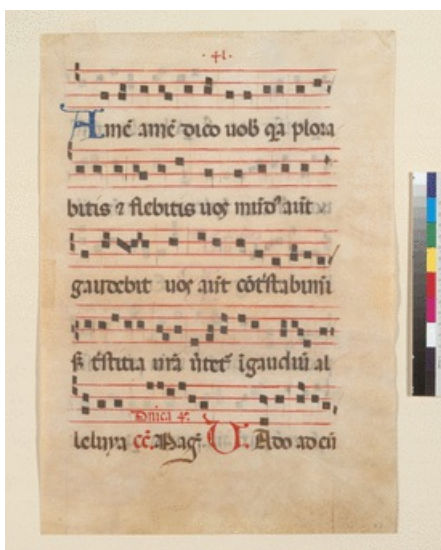 · +l ·
Amē amē dico uob̄ q̄a plora
bitis ⁊ flebitis uos mūdꝰ aūt
gaudebit uos aūt cōt'stabimī
s̄ t'stitia ur̄a ūtet' ī gaudiū al
leluya c̄c̄. Mag̃. Dnica 4ᵃ
V Ado ad eū